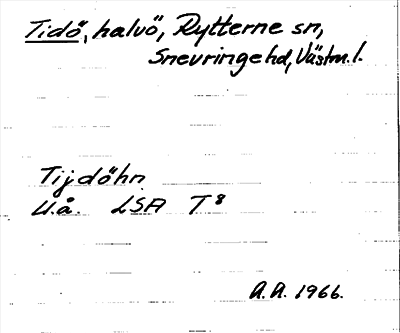 Tidö, halvö, Rytterne sn,
Snevringe hd, Västm. l.
Tijdöhn
U.å. LSA T 8
A.A. 1966.